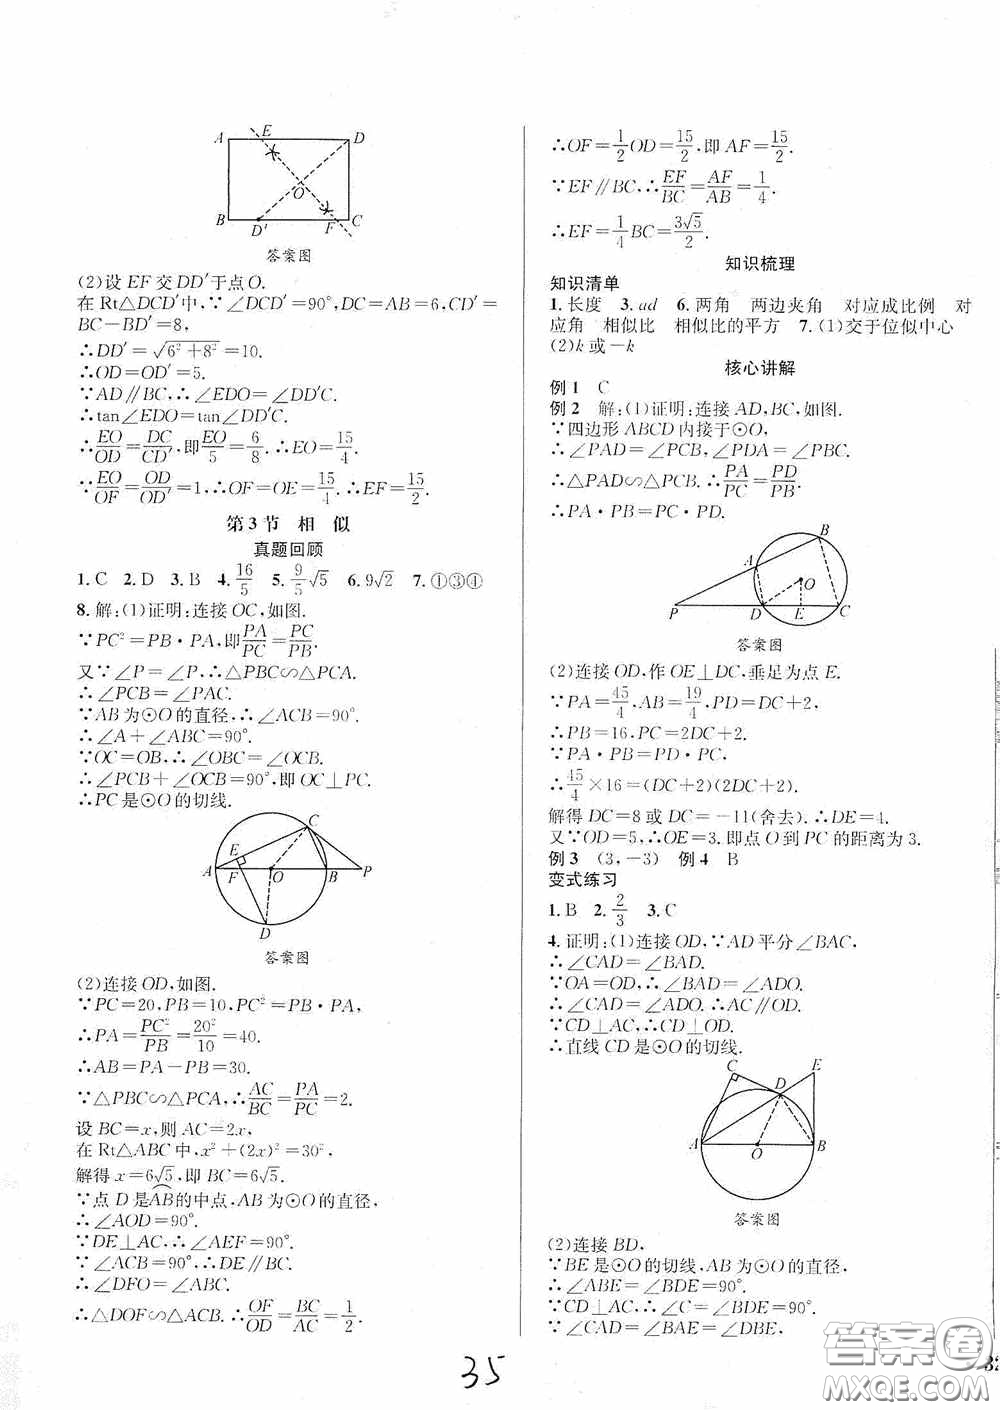 A E D
O
B D′ F C
答案图
(2)设 EF 交 DD′于点 O.
在 Rt△DCD′中,∵∠DCD′=90°,DC=AB=6,CD′=
BC-BD′=8,
∴DD′=√(6²+8²)=10.
∴OD=OD′=5.
∵AD∥BC,∴∠EDO=∠DD′C.
∴tan∠EDO=tan∠DD′C.
∴EO/OD=DC/CD′,即EO/5=6/8.∴EO=15/4.
∵EO/OF=OD/OD′=1,∴OF=OE=15/4.∴EF=15/2.
第3节 相 似
真题回顾
1.C 2.D 3.B 4.16/5 5.9/5√5 6.9√2 7.①③④
8.解:(1)证明:连接 OC,如图.
∵PC²=PB·PA,即PA/PC=PC/PB.
又∵∠P=∠P,∴△PBC∽△PCA.
∴∠PCB=∠PAC.
∵AB为⊙O的直径,∴∠ACB=90°.
∴∠A+∠ABC=90°.
∵OC=OB,∴∠OBC=∠OCB.
∴∠PCB+∠OCB=90°,即 OC⊥PC.
∴PC是⊙O的切线.
C
E
A F O B P
D
答案图
(2)连接 OD,如图.
∵PC=20,PB=10,PC²=PB·PA,
∴PA=PC²/PB=20²/10=40.
∴AB=PA-PB=30.
∵△PBC∽△PCA,∴AC/BC=PA/PC=2.
设 BC=x,则 AC=2x,
在 Rt△ABC中,x²+(2x)²=30²,
解得 x=6√5,即 BC=6√5.
∵点 D 是AB⌒的中点,AB为⊙O的直径,
∴∠AOD=90°.
∵DE⊥AC,∴∠AEF=90°.
∵∠ACB=90°,∴DE∥BC.
∴∠DFO=∠ABC.
∴△DOF∽△ACB.∴OF/OD=BC/AC=1/2.
∴OF=1/2OD=15/2,即 AF=15/2.
∵EF∥BC,∴EF/BC=AF/AB=1/4.
∴EF=1/4BC=3√5/2.
知识梳理
知识清单
1.长度 3.ad 6.两角 两边夹角 对应成比例 对
应角 相似比 相似比的平方 7.(1)交于位似中心
(2)k或-k
核心讲解
例 1 C
例 2 解:(1)证明:连接 AD,BC,如图.
∵四边形 ABCD 内接于⊙O,
∴∠PAD=∠PCB,∠PDA=∠PBC.
∴△PAD∽△PCB.∴PA/PC=PD/PB.
∴PA·PB=PC·PD.
B
A
O
P D E C
答案图
(2)连接 OD,作 OE⊥DC,垂足为点 E.
∵PA=45/4,AB=19/4,PD=DC+2,
∴PB=16,PC=2DC+2.
∵PA·PB=PD·PC,
∴45/4×16=(DC+2)(2DC+2).
解得 DC=8 或 DC=-11(舍去).∴DE=4.
又∵OD=5,∴OE=3.即点 O 到 PC 的距离为 3.
例 3 (3,-3) 例 4 B
变式练习
1.B 2.2/3 3.C
4.证明:(1)连接 OD,∵AD 平分∠BAC,
∴∠CAD=∠BAD.
∵OA=OD,∴∠BAD=∠ADO.
∴∠CAD=∠ADO.∴AC∥OD.
∵CD⊥AC,∴CD⊥OD.
∴直线 CD 是⊙O的切线.
C E
D
A O B
答案图
(2)连接 BD,
∵BE 是⊙O的切线,AB为⊙O的直径,
∴∠ABE=∠BDE=90°.
∵CD⊥AC,∴∠C=∠BDE=90°.
∵∠CAD=∠BAE=∠DBE,
35
答案卷
MXQE.COM